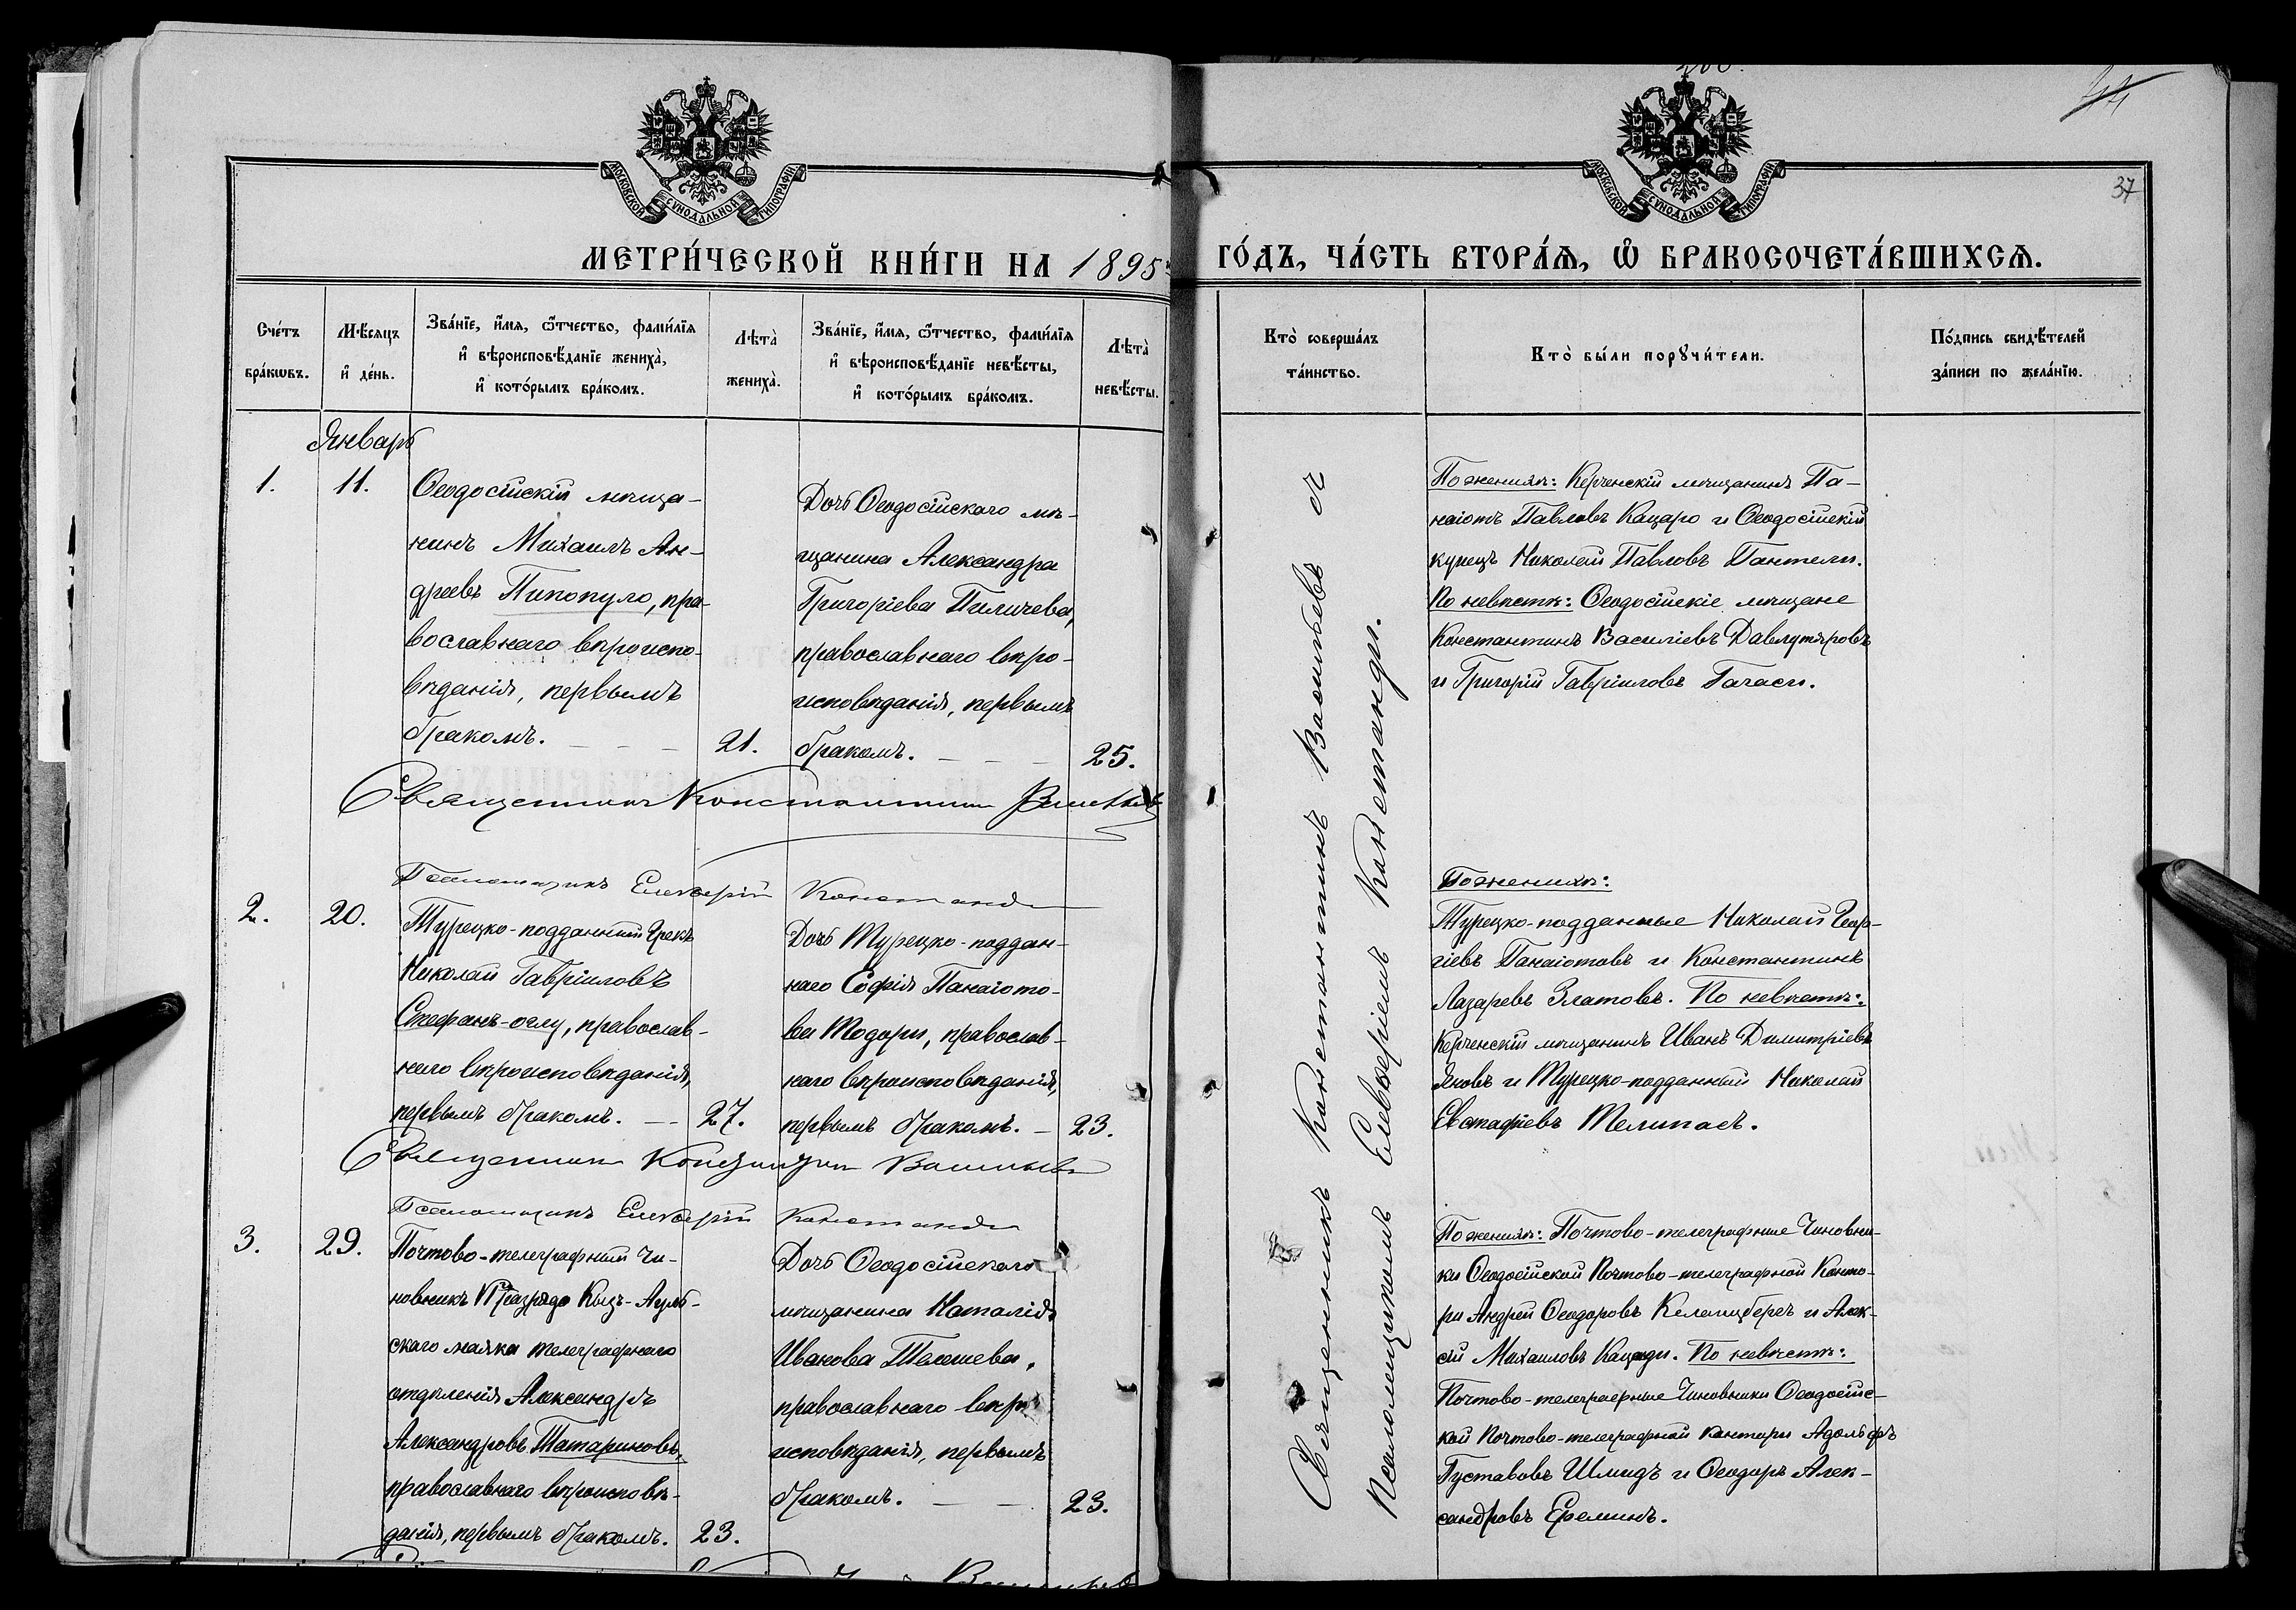 МОСКОВСКОЙ СУНОДАЛЬНОЙ ТИПОГРАФІИ
МЕТРИ́ЧЕСКОЙ КНИ́ГИ НА 1895
Сче́тъ
бра́кѡвъ.
Мѣ́сяцъ
и҆ де́нь.
Зва́нїе, и҆́мѧ, ѻ҆́тчество, фами́лїѧ
и҆ вѣроисповѣ́данїе жениха̀,
и҆ кото́рымъ бра́комъ.
Лѣта̀
жениха̀.
Зва́нїе, и҆́мѧ, ѻ҆́тчество, фами́лїѧ
и҆ вѣроисповѣ́данїе невѣ́сты,
и҆ кото́рымъ бра́комъ.
Лѣта̀
невѣ́сты.
Январь
1.
11.
Ѳеодосійскій мѣща-
нинъ Михаилъ Ан-
дреевъ Пипопуло, пра-
вославнаго вѣроиспо-
вѣданія, первымъ
бракомъ. - - -
21.
Дочь Ѳеодосійскаго мѣ-
щанина Александра
Григоріева Пиличева,
православнаго вѣро-
исповѣданія, первымъ
бракомъ. - - -
25.
Священникъ Константинъ Васильевъ
Псаломщикъ Елевѳерій Констанди
2.
20.
Турецко-подданный Грекъ
Николай Гавріиловъ
Стефанъ-оглу, православ-
наго вѣроисповѣданія,
первымъ бракомъ. - -
27.
Дочь Турецко-поддан-
наго Софія Панаіото-
ва Тодори, православ-
наго вѣроисповѣданія,
первымъ бракомъ. -
23.
Священникъ Константинъ Васильевъ
Псаломщикъ Елевѳерій Констанди
3.
29.
Почтово-телеграфный Чи-
новникъ VI разряда Кызъ-Ауль-
скаго маяка телеграфнаго
отдѣленія Александръ
Александровъ Татариновъ,
православнаго вѣроисповѣ-
данія, первымъ бракомъ.
23.
Дочь Ѳеодосійскаго
мѣщанина Наталія
Иванова
православнаго вѣро
исповѣданія, первымъ
бракомъ. - -
23.
44
37
МОСКОВСКОЙ СУНОДАЛЬНОЙ ТИПОГРАФІИ
ГО́ДЪ, ЧА́СТЬ ВТОРА́Ѧ, Ѽ БРАКОСОЧЕТА́ВШИХСѦ.
Кто̀ соверша́лъ
та́инство.
Кто̀ бы́ли порꙋчи́тели.
По́дпись свидѣ́телей
за́писи по жела́нїю.
Священникъ Константинъ Васильевъ съ
Псаломщикомъ Елевѳеріемъ Констанди.
По женихѣ: Керченскій мѣщанинъ Па-
наіотъ Павловъ Кацаро и Ѳеодосійскій
купецъ Николай Павловъ Пантели.
По невѣстѣ: Ѳеодосійскіе мѣщане
Константинъ Василіевъ Давлутяровъ
и Григорій Гавріиловъ Гагаси.
По женихѣ:
Турецко-подданные Николай Геор-
гіевъ Панаіотовъ и Константинъ
Лазаревъ Златовъ. По невѣстѣ:
Керченскій мѣщанинъ Иванъ Димитріевъ
Яновъ и Турецко-подданный Николай
Евстафіевъ Телипасъ.
По женихѣ: Почтово-телеграфные Чиновни-
ки Ѳеодосійской Почтово-телеграфной Конто-
ры Андрей Ѳеодоровъ и Алек-
сѣй Михаиловъ По невѣстѣ:
Почтово-телеграфные Чиновники Ѳеодосійс-
кой Почтово-телеграфной Конторы Адольфъ
Густавовъ Шмидъ и Ѳеодоръ Алек-
сандровъ Ереминъ.